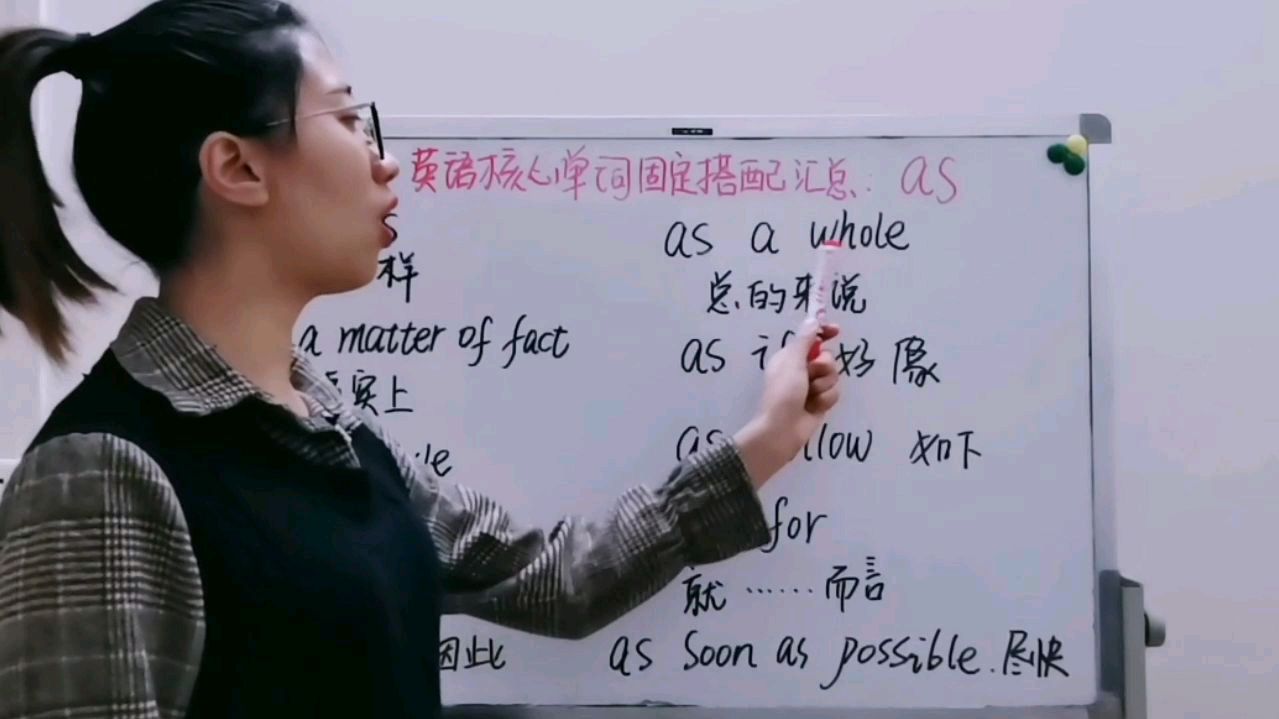 英语核心单词固定搭配汇总: as
as a whole
样
总的来说
a matter of fact
as if 好像
实上
as llow 如下
for
就……而言
因此
as soon as possible. 尽快